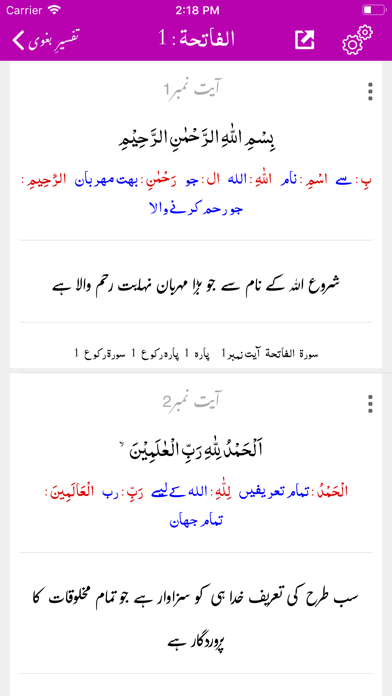 Carrier 2:18 PM
تفسیر بغوی الفاتحة : 1
آیت نمبر1
بِسْمِ اللهِ الرَّحْمٰنِ الرَّحِيْمِ
بِ: سے اسْمِ: نام اللهِ: الله ال: جو رَحْمٰنِ: بهت مهربان الرَّحِيمِ:
جو رحم کرنے والا
شروع اللہ کے نام سے جو بڑا مہربان نہایت رحم والا ہے
سورة الفاتحة آیت نمبر1 پارہ 1 پارہ رکوع 1 سورۃ رکوع 1
آیت نمبر2
اَلْحَمْدُ لِلّٰهِ رَبِّ الْعٰلَمِيْنَ ۙ
الْحَمْدُ: تمام تعریفیں لِلّٰهِ: الله کے لیے رَبِّ: رب الْعَالَمِينَ:
تمام جهان
سب طرح کی تعریف خدا ہی کو سزاوار ہے جو تمام مخلوقات کا
پروردگار ہے